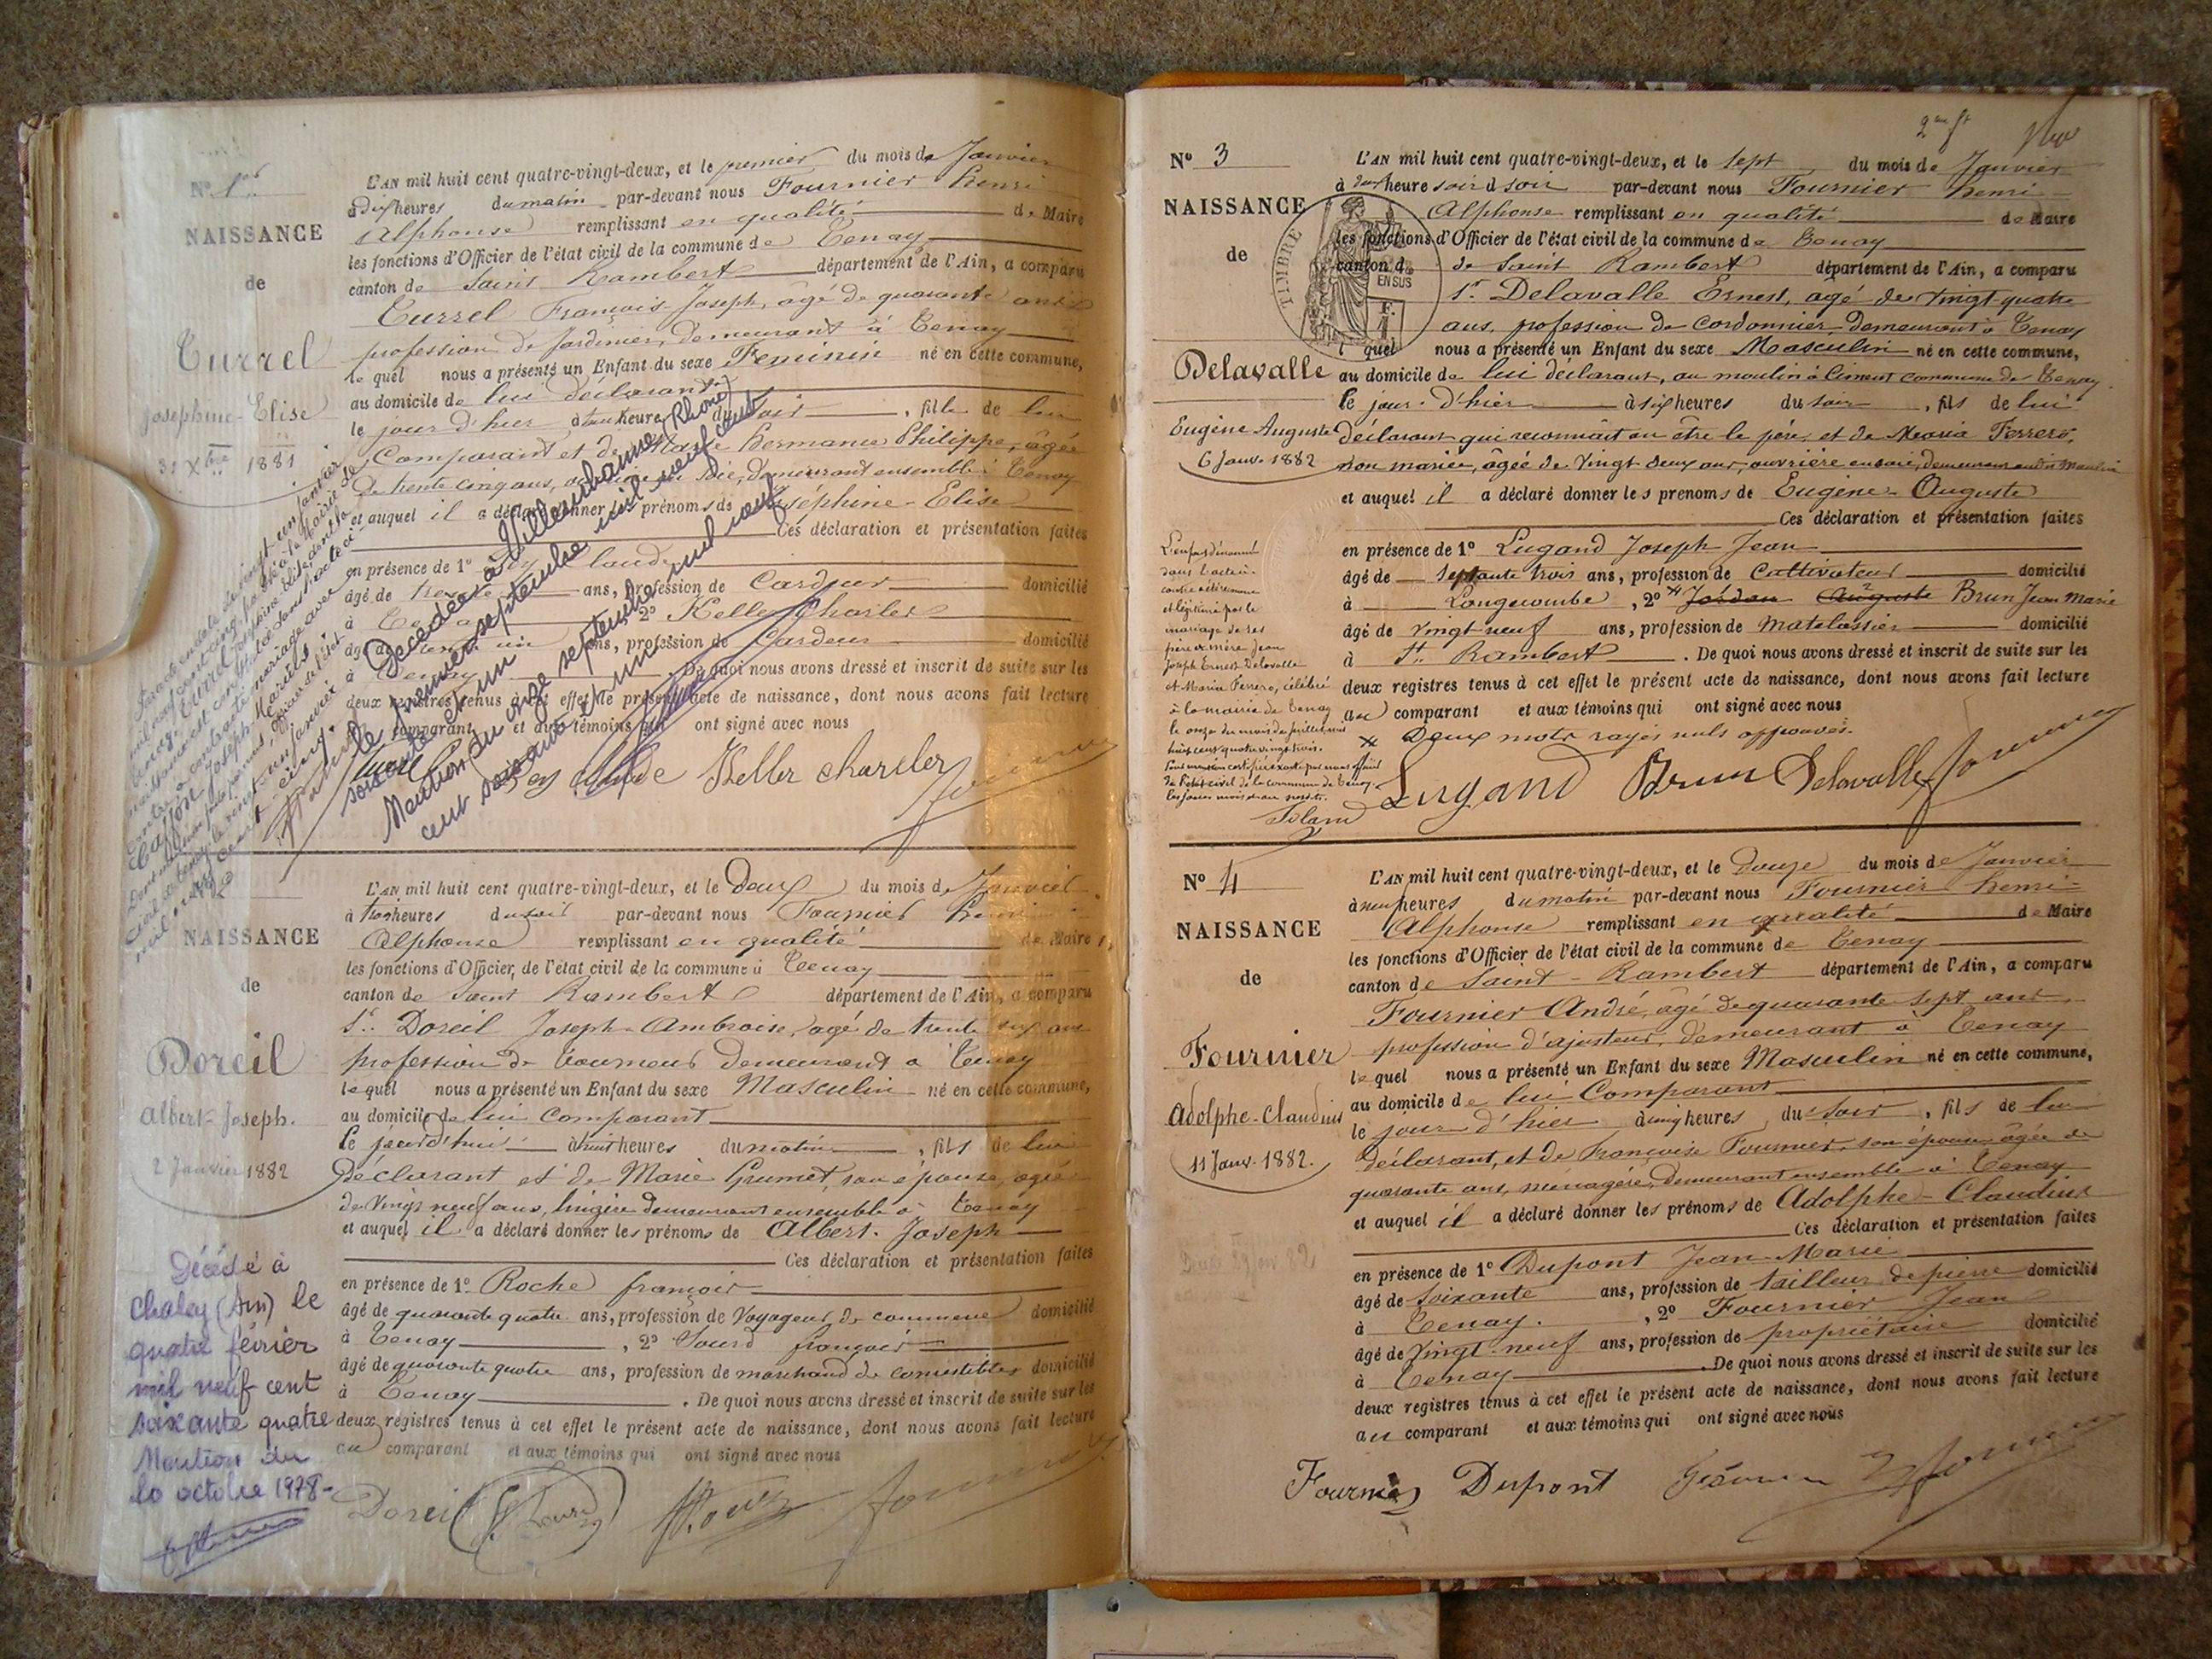 N° 1er
NAISSANCE
de
Turrel
Joséphine-Elise
31 Xbre 1881
L'AN mil huit cent quatre-vingt-deux, et le premier du mois de Janvier
à dix heures du matin par-devant nous Fournier Henri
Alphonse remplissant en qualité de Maire
les fonctions d'Officier de l'état civil de la commune de Tenay
canton de Saint Rambert département de l'Ain, a comparu
Turrel François Joseph, âgé de quarante ans
profession de Jardinier, demeurant à Tenay
le quel nous a présenté un Enfant du sexe Féminin né en cette commune,
au domicile de lui déclarant
le jour d'hier heure du soir, fille de lui
Comparant et de Marie Hermance Philippe, âgée
de trente cinq ans, soie, demeurant ensemble à Tenay
et auquel il a déclaré donner les prénoms de Joséphine-Elise
Ces déclaration et présentation faites
en présence de 1° Claude
âgé de ans, profession de Cardeur domicilié
à Tenay, 2° Keller Charles
âgé de ans, profession de Cardeur domicilié
à Tenay. De quoi nous avons dressé et inscrit de suite sur les
deux registres tenus à cet effet le présent acte de naissance, dont nous avons fait lecture
au comparant et aux témoins qui ont signé avec nous
Claude Keller charles
Décédée à Villeurbanne (Rhône)
le premier septembre mil neuf cent
soixante et un
Mention du onze septembre mil neuf
cent soixante et un
NAISSANCE
de
Doreil
Albert-Joseph.
2 Janvier 1882
L'AN mil huit cent quatre-vingt-deux, et le Deux du mois de Janvier
à trois heures du soir par-devant nous Fournier Henri
Alphonse remplissant en qualité de Maire
les fonctions d'Officier, de l'état civil de la commune à Tenay
canton de Saint Rambert département de l'Ain, a comparu
Sr. Doreil Joseph-Ambroise, âgé de trente six ans
profession de tourneur demeurant à Tenay
le quel nous a présenté un Enfant du sexe Masculin né en cette commune,
au domicile de lui Comparant
le jourd'hui à huit heures du matin, fils de lui
Déclarant et de Marie Grumet, son épouse, âgée
de Vingt neuf ans, lingère demeurant ensemble à Tenay
et auquel il a déclaré donner les prénoms de Albert-Joseph
Ces déclaration et présentation faites
en présence de 1° Roche françois
âgé de quarante quatre ans, profession de Voyageur de commerce domicilié
à Tenay, 2° Sourd françois
âgé de quarante quatre ans, profession de marchand de comestibles domicilié
à Tenay. De quoi nous avons dressé et inscrit de suite sur les
deux registres tenus à cet effet le présent acte de naissance, dont nous avons fait lecture
au comparant et aux témoins qui ont signé avec nous
Doreil
Décédé à
Chaley (Ain) le
quatre février
mil neuf cent
soixante quatre
Mention du
10 octobre 1978-
N° 3
NAISSANCE
de
TIMBRE
EN SUS
Delavalle
Eugène Auguste
6 Janv. 1882
L'AN mil huit cent quatre-vingt-deux, et le sept du mois de Janvier
à heure soir par-devant nous Fournier Henri
Alphonse remplissant en qualité de Maire
les fonctions d'Officier de l'état civil de la commune de Tenay
canton de de Saint Rambert département de l'Ain, a comparu
Sr. Delavalle Ernest, âgé de Vingt quatre
ans, profession de Cordonnier demeurant à Tenay
l quel nous a présenté un Enfant du sexe Masculin né en cette commune,
au domicile de lui déclarant, au moulin à Ciment commune de Tenay.
le jour d'hier à six heures du soir, fils de lui
déclarant qui reconnait en être le père, et de Maria Ferrero,
non mariée, âgée de Vingt deux ans, ouvrière en soie, demeurant audit Moulin
et auquel il a déclaré donner les prénoms de Eugène-Auguste
Ces déclaration et présentation faites
en présence de 1° Lugand Joseph Jean
âgé de septante trois ans, profession de Cultivateur domicilié
à Longecombe, 2° Jordan Auguste Brun Jean Marie
âgé de vingt neuf ans, profession de Matelassier domicilié
à St. Rambert. De quoi nous avons dressé et inscrit de suite sur les
deux registres tenus à cet effet le présent acte de naissance, dont nous avons fait lecture
au comparant et aux témoins qui ont signé avec nous
Deux mots rayés nuls approuvés.
Lugand Brun Delavalle
L'enfant dénommé
dans l'acte ci-
contre a été reconnu
et légitimé par le
mariage de ses
père et mère Jean
Joseph Ernest Delavalle
et Maria Ferrero, célébré
à la mairie de Tenay
le onze du mois de juillet mil
huit cent quatre vingt trois.
N° 4
NAISSANCE
de
Fournier
Adolphe-Claudius
11 Janv. 1882.
L'AN mil huit cent quatre-vingt-deux, et le Douze du mois de Janvier
à neuf heures du matin par-devant nous Fournier Henri-
Alphonse remplissant en qualité de Maire
les fonctions d'Officier de l'état civil de la commune de Tenay
canton de Saint-Rambert département de l'Ain, a comparu
Fournier André, âgé de quarante sept ans,
profession d'ajusteur, demeurant à Tenay
le quel nous a présenté un Enfant du sexe Masculin né en cette commune,
au domicile de lui Comparant
le jour d'hier à cinq heures du soir, fils de lui
déclarant, et de Françoise Fournier, son épouse âgée de
quarante ans, ménagère, demeurant ensemble à Tenay
et auquel il a déclaré donner les prénoms de Adolphe-Claudius
Ces déclaration et présentation faites
en présence de 1° Dupont Jean-Marie
âgé de Soixante ans, profession de tailleur de pierre domicilié
à Tenay., 2° Fournier Jean
âgé de Vingt-neuf ans, profession de propriétaire domicilié
à Tenay. De quoi nous avons dressé et inscrit de suite sur les
deux registres tenus à cet effet le présent acte de naissance, dont nous avons fait lecture
au comparant et aux témoins qui ont signé avec nous
Fournier Dupont